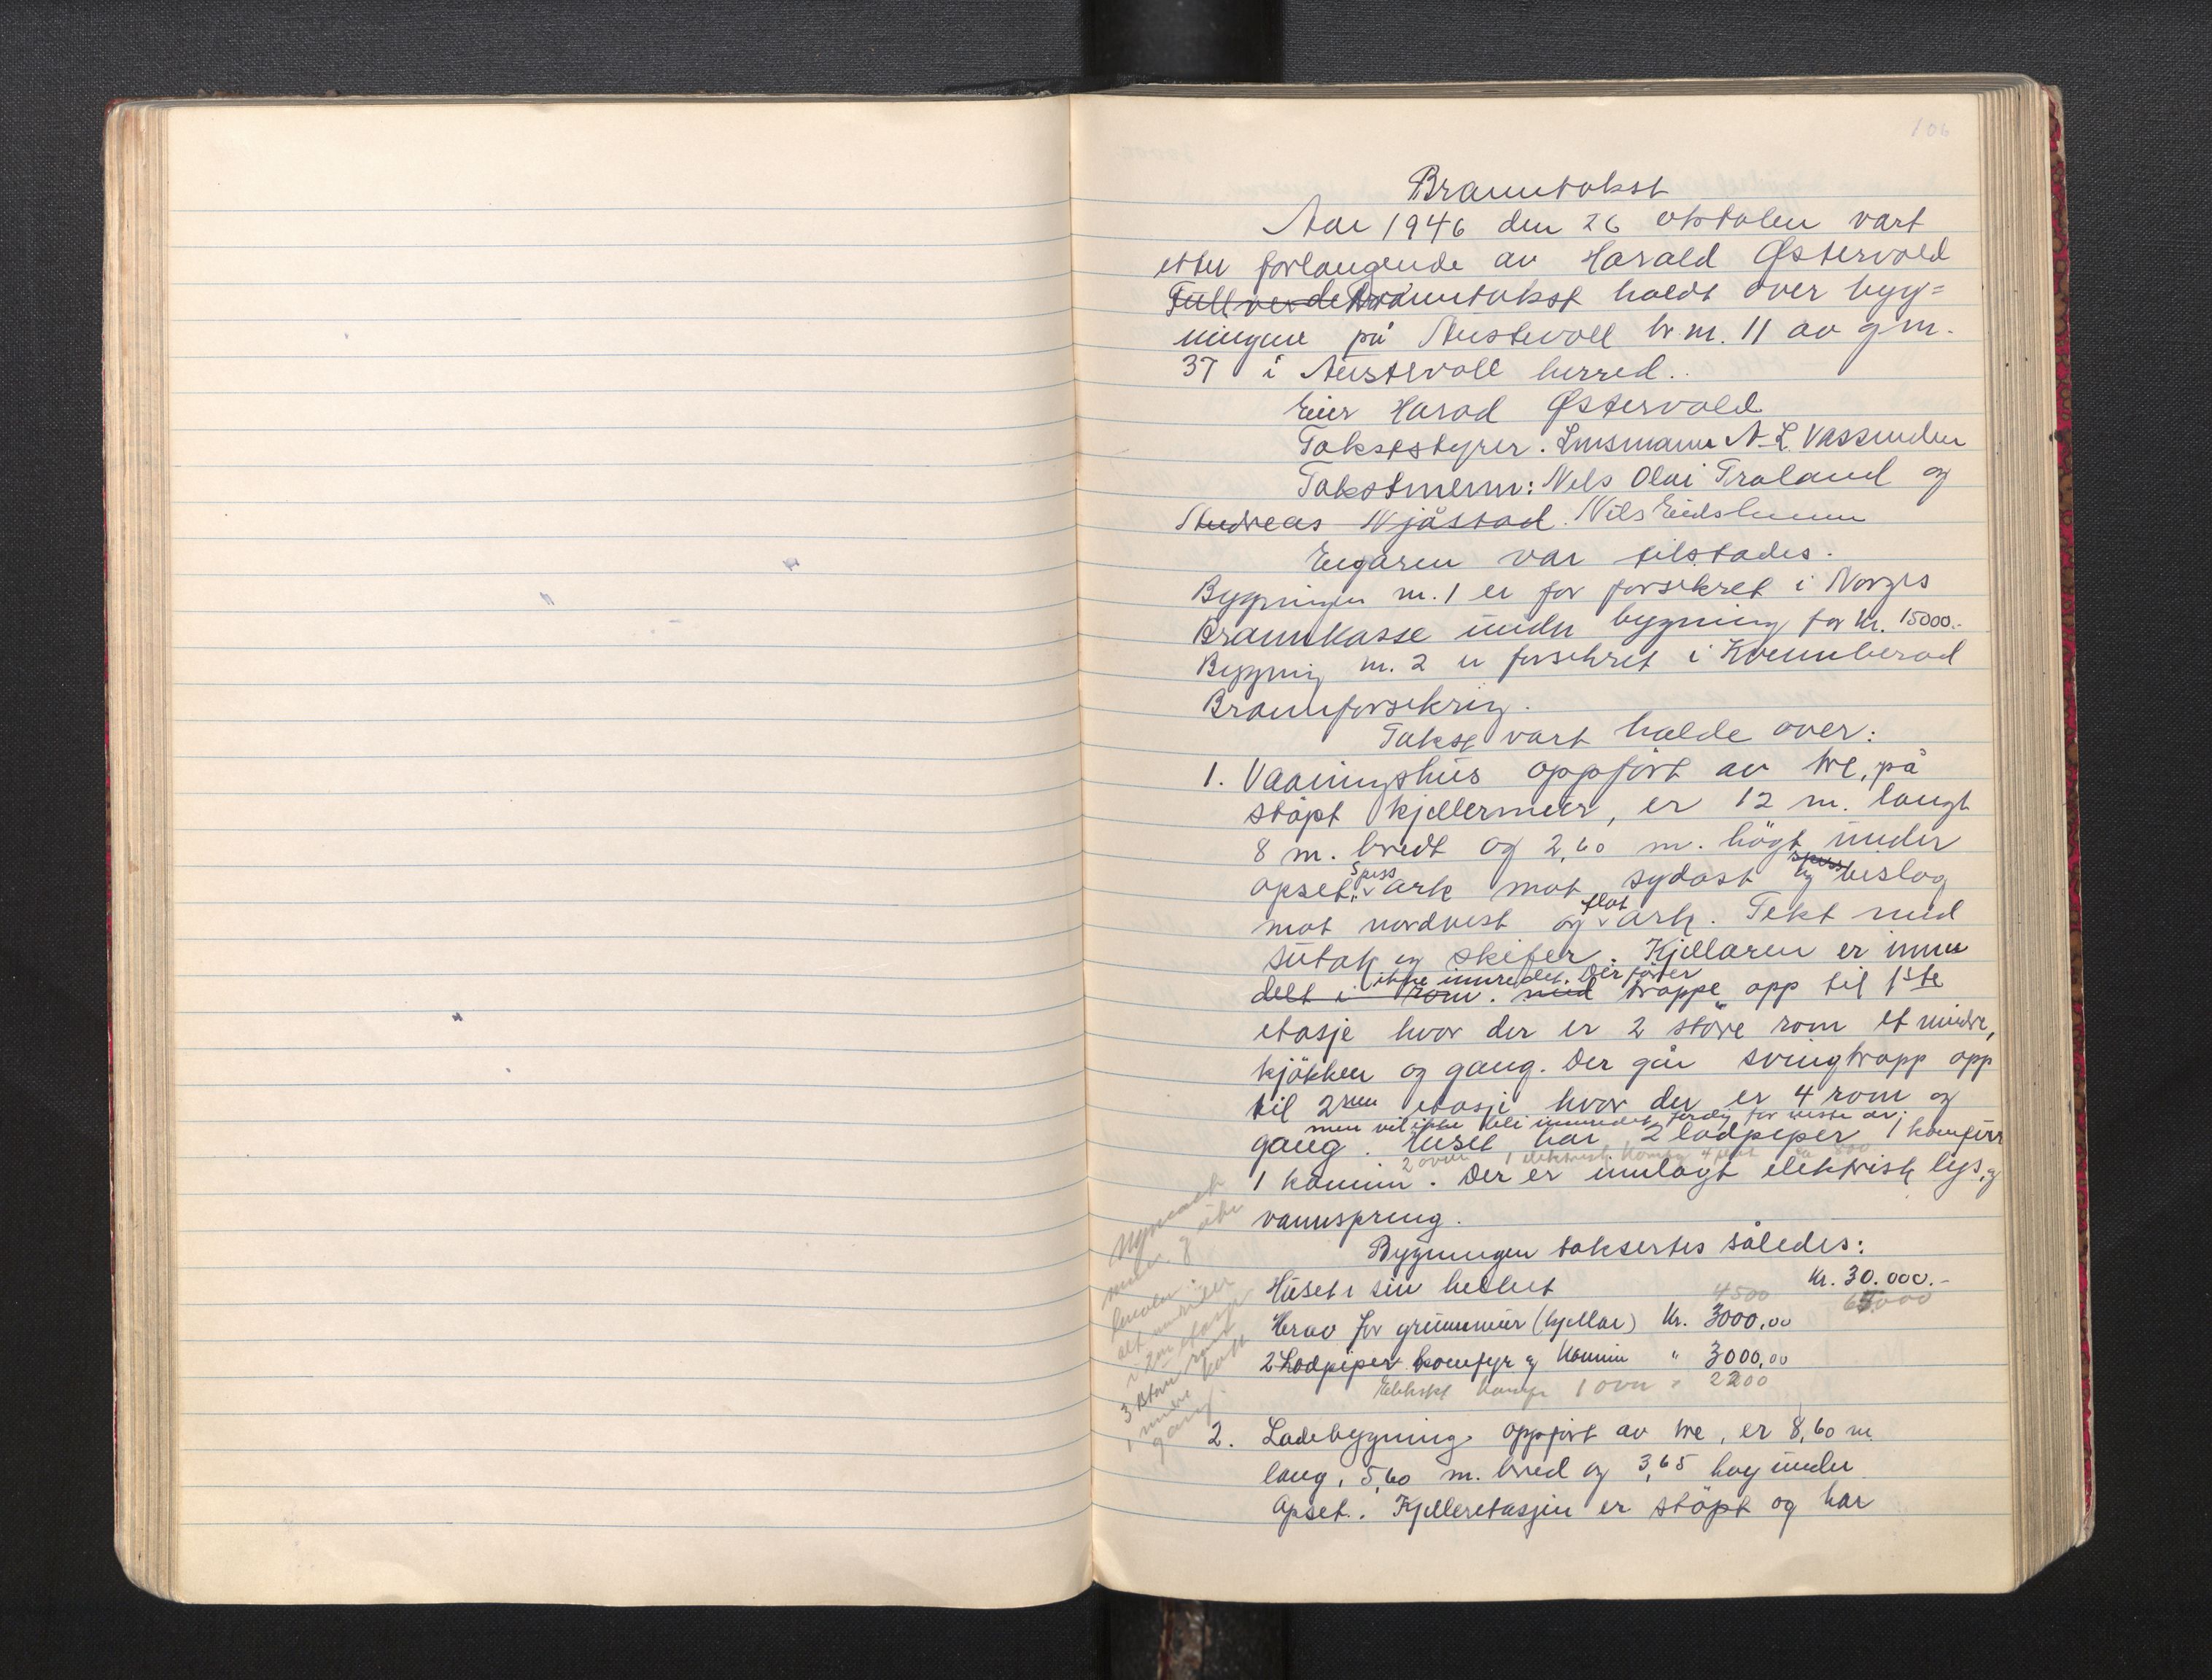 106
Branntakst
Aar 1946 den 26 oktober vart
etter forlangende av Harald Østervold
Fullverdebranntakst holdt over byg=
ningene på Austevoll br. nr. 11 av g nr.
37 i Austevoll herred.
Eier Harad Østervold
Takststyrer. Lensmann N. L. Vassenden
Takstmenn: Nils Olai Træland og
Andreas Njåstad. Nils Eidshaum
Eigaren var tilstades.
Bygningen nr. 1 er før forsikret i Norges
Brannkasse under bygning for kr. 15000.-
Bygning nr. 2 er forsikret i Kvennherad
Brannforsikring.
Takst vart halde over:
1. Vaaningshus oppført av tre, på
støpt kjellermur, er 12 m. langt
8 m. bredt og 2,60 m. høgt under
spiss
opset. spiss ark mot sydøst og bislag
mot nordvest og flat ark. Tekt med
sutak og skifer. Kjellaren er inne
ikke innredet. Der fører
delt i rom. med trappe opp til 1ste
etasje hvor der er 2 støre rom et mindre,
kjøkken og gang. Der går svingtrapp opp
til 2nen etasje hvor der er 4 rom og
men vil ikke bli innredet ferdig før neste år.
gang. Huset har 2 lodpiper 1 komfyr
2 ovner 1 elektrisk komfyr 4 plat
1 kamin. Der er innlagt elektrisk lys og
vannspring.
Bygningen taksertes således:
Huset i sin helhet Kr. 30.000.-
4500 65000
Herav for grunnmur (kjellar) Kr. 3000,00
2 Lodpiper komfyr og kamin " 3000,00
Elektrisk komfyr 1 ovn " 2200
alt under
i 2en etasje
3 store rom
1 mindre
gang.
2. Ladebygning oppført av tre, er 8,60 m.
lang, 5,60 m. bred og 3,65 høg under
opset. Kjelleretasjen er støpt og har